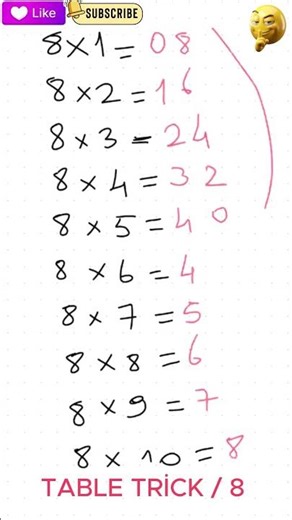 Like SUBSCRIBE
8×1=08
8×2=16
8×3=24
8×4=32
8×5=40
8×6=4
8×7=5
8×8=6
8×9=7
8×10=8
TABLE TRİCK / 8